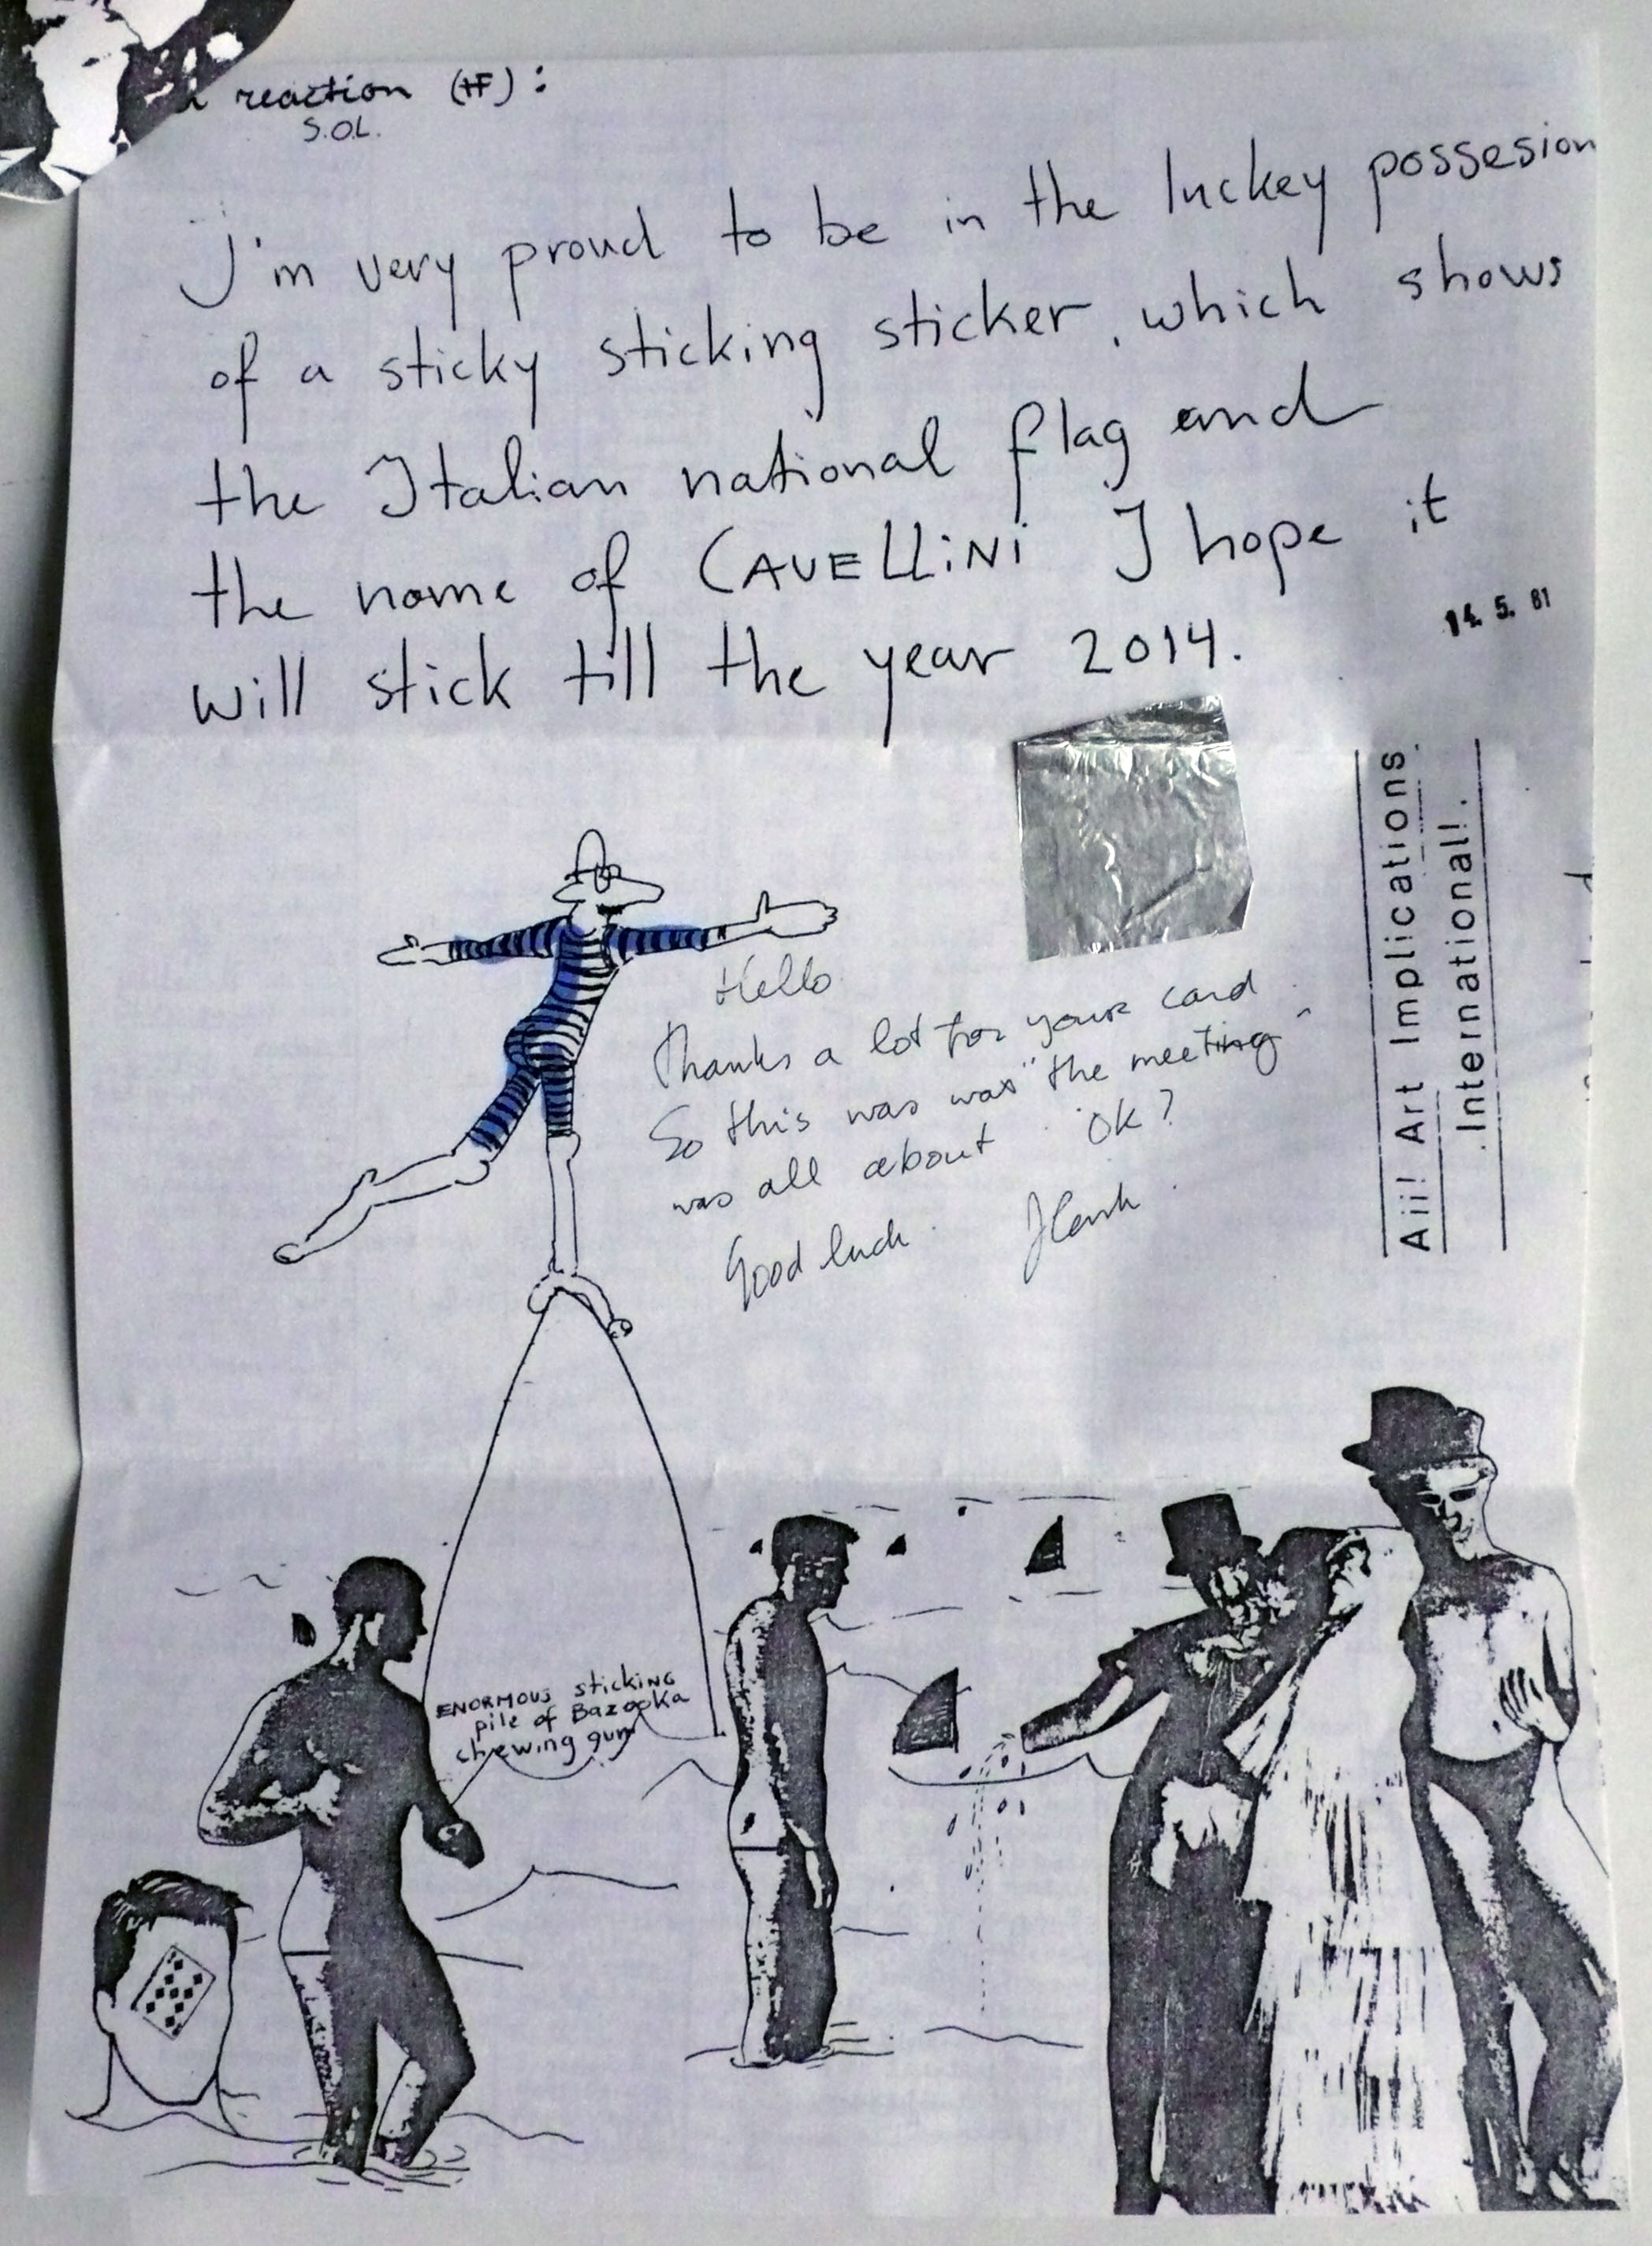 reaction (tF):
S.O.L.
I'm very proud to be in the luckey possesion
of a sticky sticking sticker, which shows
the Italian national flag and
the name of CAVELLiNi I hope it
will stick till the year 2014.
14. 5. 81
Aii! Art Implications
.International!.
Hello
Thanks a lot for your card
So this was was "the meeting"
was all about. Ok?
Good luck.
ENORMOUS sticking
pile of Bazooka
chewing gum